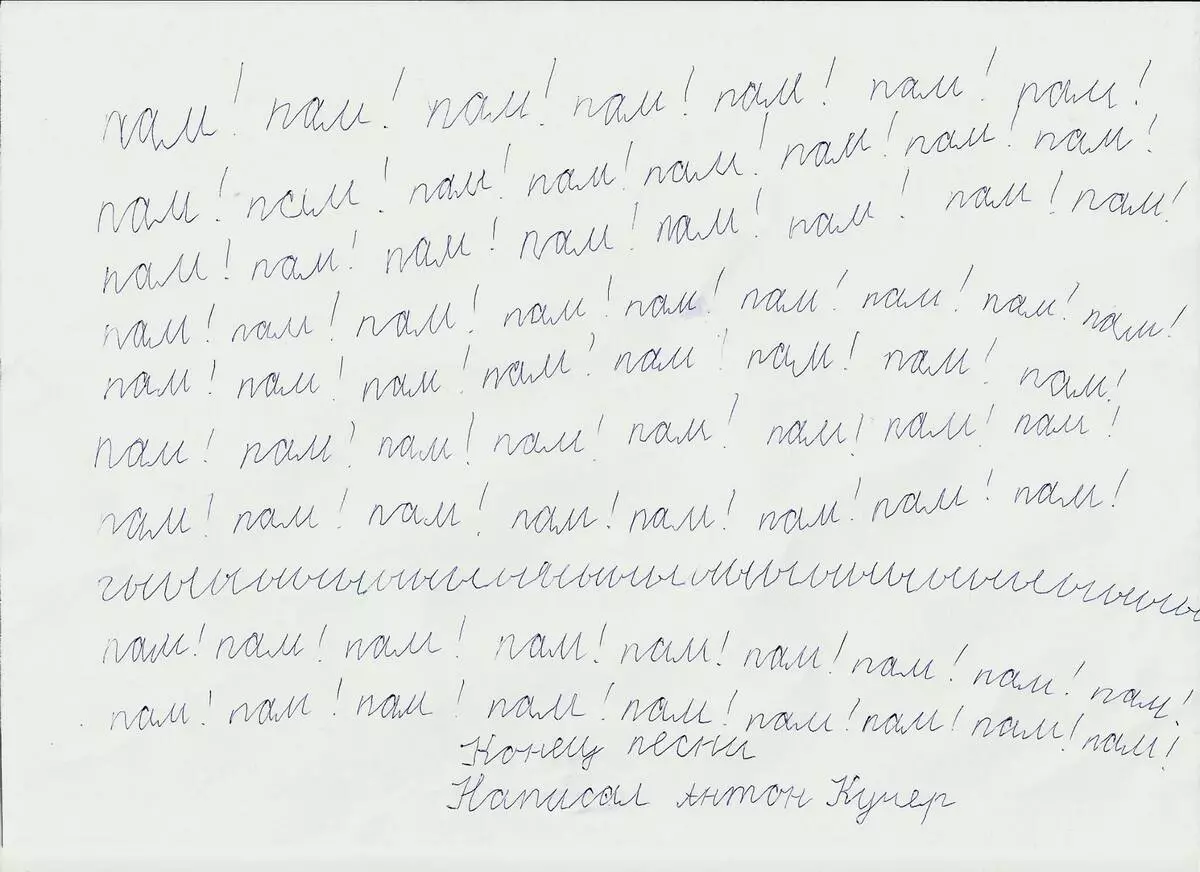 пам! пам! пам! пам! пам! пам! рам!
пам! пам! пам! пам! пам! пам! пам! пам!
пам! пам! пам! пам! пам! пам! пам! пам!
пам! пам! пам! пам! пам! пам! пам! пам! пам!
пам! пам! пам! пам! пам! пам! пам! пам!
пам! пам! пам! пам! пам! пам! пам! пам!
пам! пам! пам! пам! пам! пам! пам! пам!
гыыыыыыыыыыыыыыыыыыыыыы
пам! пам! пам! пам! пам! пам! пам! пам! пам!
пам! пам! пам! пам! пам! пам! пам! пам! пам!
Конец песни
Написал Антон Кучер